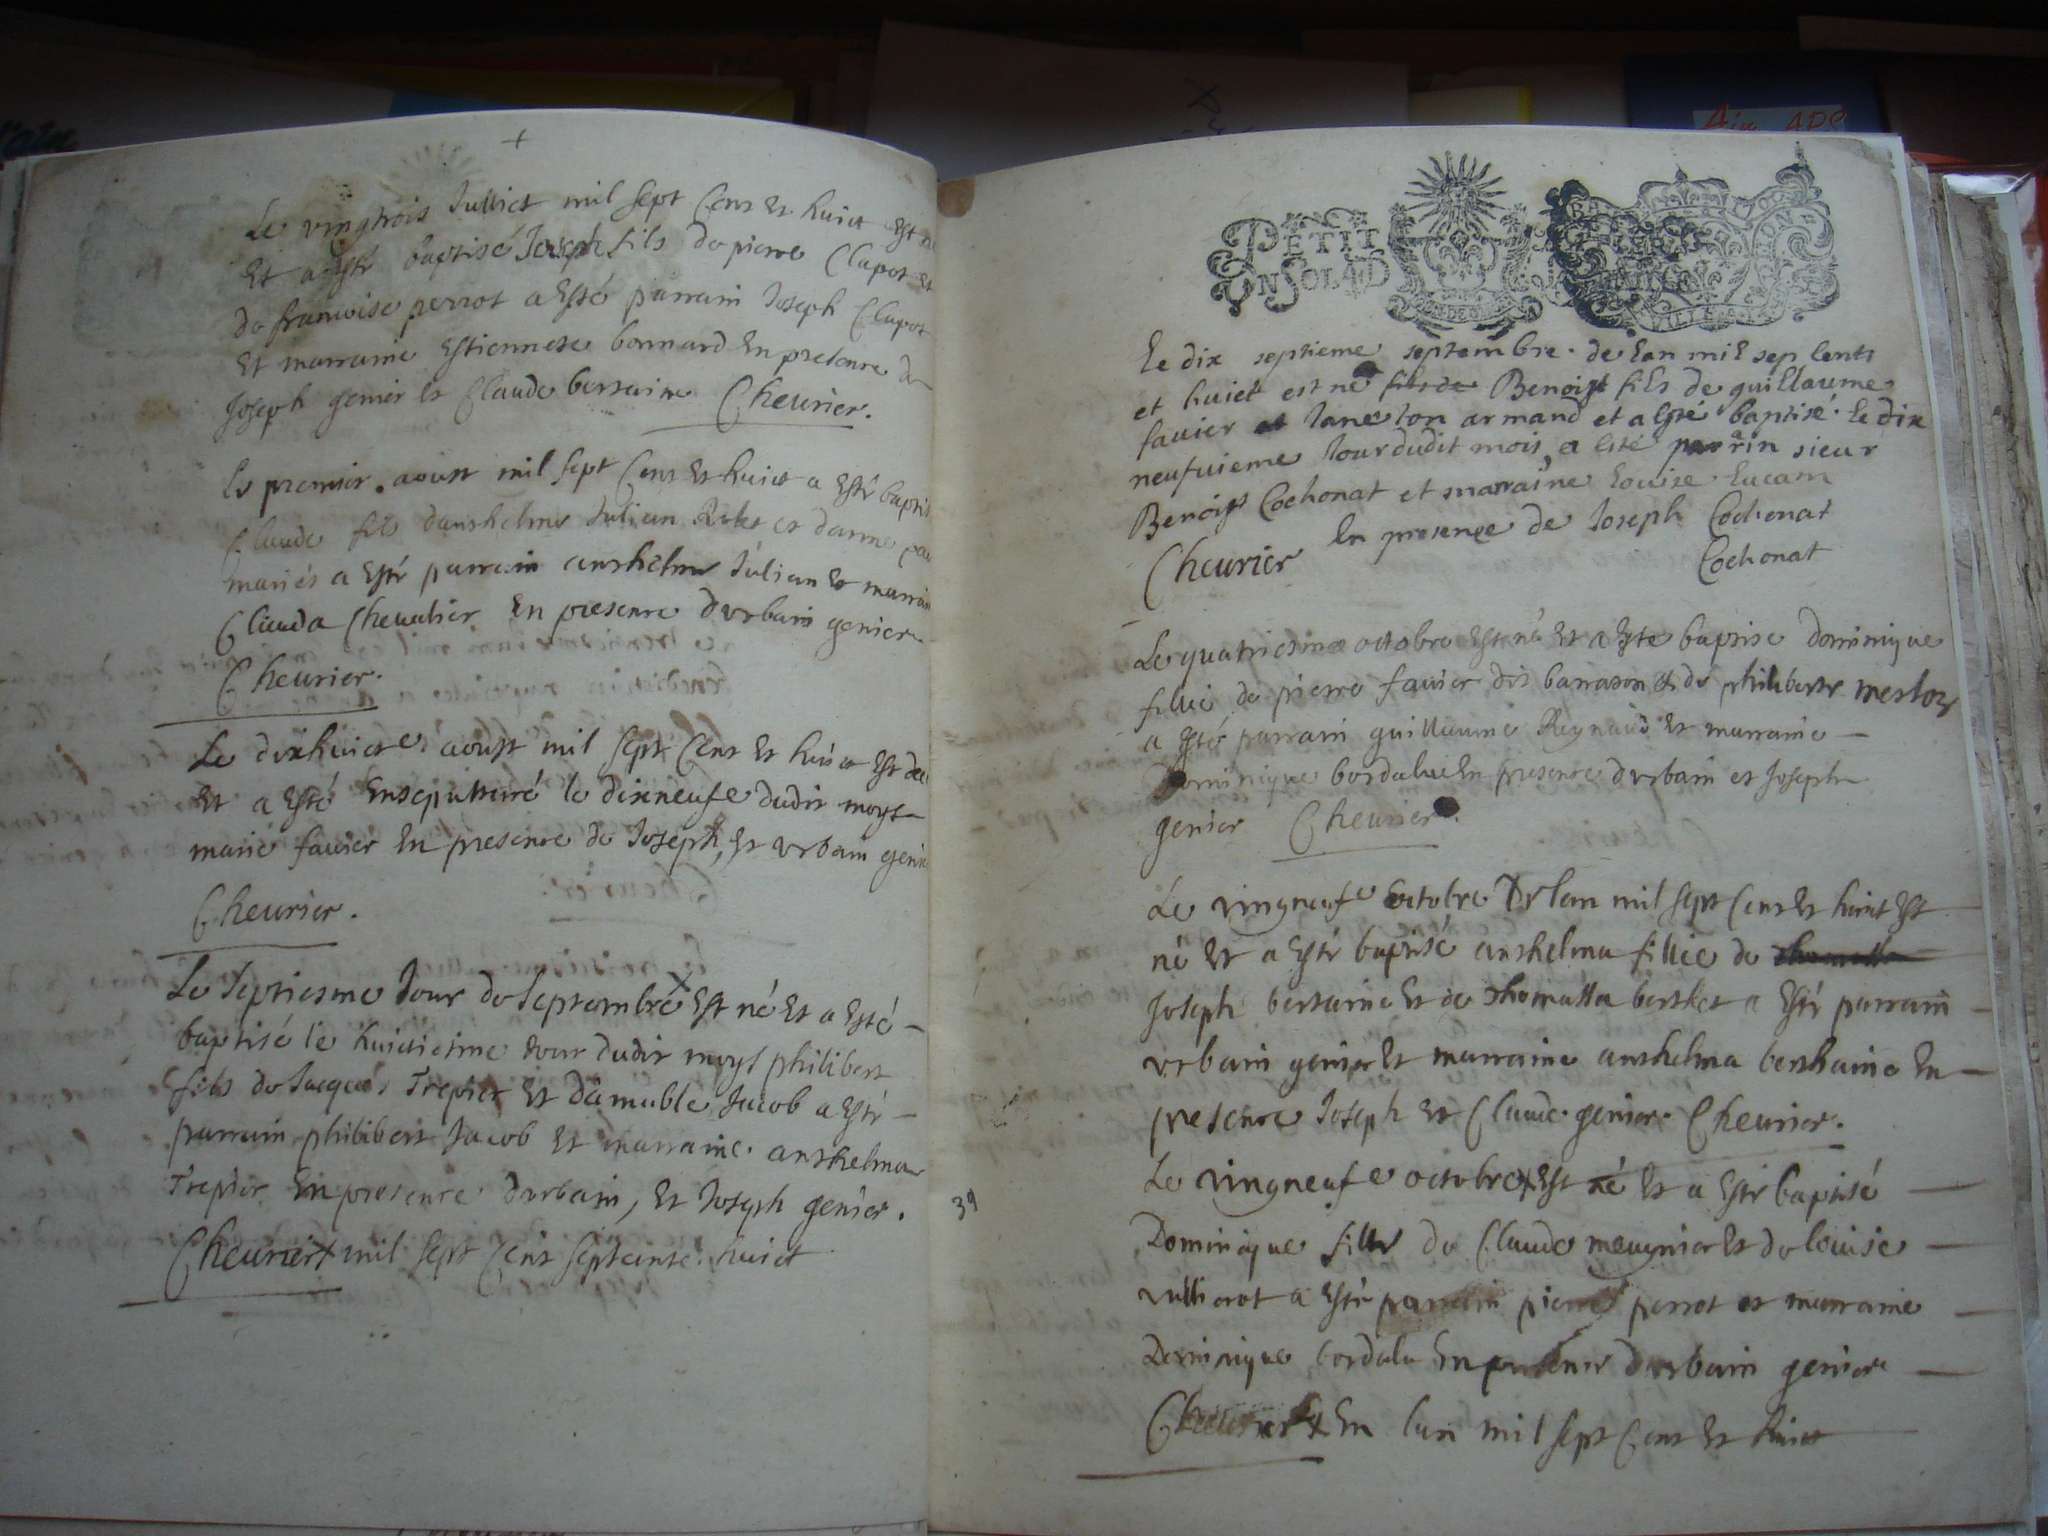 Le vingtrois Julliet mil sept cens et huict est né
Et a esté baptisé Joseph fils de pierre Clapot et
de francoise perrot a esté parrain Joseph Clapot
Et marraine Estiennete bonnard En presence de
Joseph genier et Claude bersaine Cheurier.
Le premier aoust mil sept cens et huict a esté baptisé
Claude fils danthelme Julian et
mariés a esté parrain anthelme Julian et marraine
Clauda Cheualier En presence durbain genier
Cheurier.
Le dixhuicte aoust mil sept cens et huict est
Et a esté Ensepulturé le dixneufe dudit moys
marie fauier En presence de Joseph, et urbain genier
Cheurier.
Le septiesme Jour de septembre x Est né et a Esté
baptisé le huictiesme Jour dudit moys philibert
fils de Jacques Trepier et damable Jacob a Esté
parrain philibert Jacob et marraine anthelma
Trepier En presence durbain, et Joseph genier.
Cheurier x mil sept cens septeinte huict
PETIT
EN SOL 4D
Le dix septieme septembre de Lan mil sep cents
et huict est né fils de Benoist fils de guillaume
fauier et Janeton armand et a esté baptisé le dix
neufuieme Jour dudit mois, a esté parrin sieur
Benoist Cochonat et marraine Louise Lucam
En presence de Joseph Cochonat
Cheurier Cochonat
Le quatriesme octobre Est né et a este baptise dominique
fillie de pierre fauier dit barrason et de philiberte
a esté parrain guillaume Reynaud et marraine
Dominique bordalue En presence durbain et Joseph
genier Cheurier.
Le vingneufe octobre de lan mil sept cens et huict est
né et a esté baptisé anthelma fillie de
Joseph bersaine et de thomassa berthet a esté parrain
urbain genier et marraine anthelma berthaine En
presence Joseph et Claude genier. Cheurier.
39
Le vingneufe octobre x Est né et a Esté baptisé
Dominique fille de Claude meugnier et de louise
vullierot a Esté parrain pierre perrot et marraine
Dominique bordalu En presence durbain genier
Cheurier x En lan mil sept cens et huict